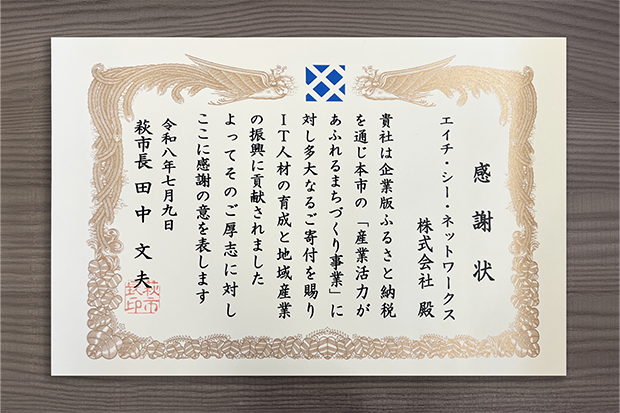 感謝状
エイチ・シー・ネットワークス
株式会社 殿
貴社は企業版ふるさと納税
を通じ本市の「産業活力が
あふれるまちづくり事業」に
対し多大なるご寄付を賜り
IT人材の育成と地域産業
の振興に貢献されました
よってそのご厚志に対し
ここに感謝の意を表します
令和八年七月九日
萩市長 田中文夫
萩市
式印